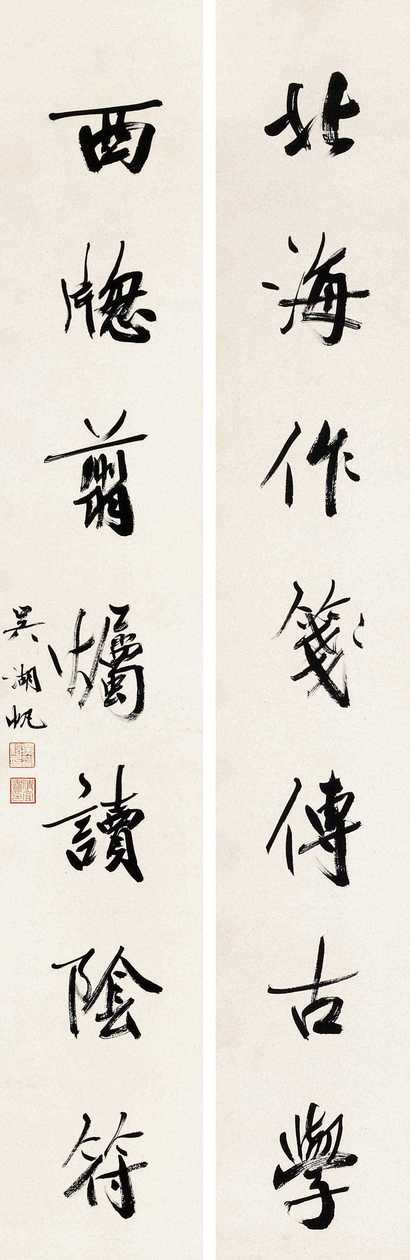 北海作箋傳古學
西窗翦爥讀陰符
吳湖帆